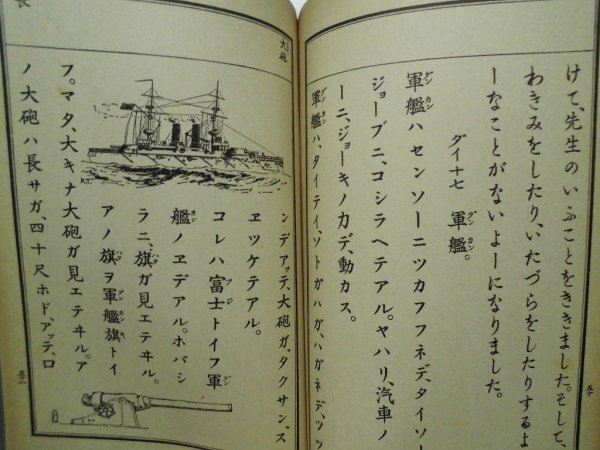 けて、先生のいふことをききました。そして、
わきみをしたり、いたづらをしたりするよ
ーなことがないよーになりました。
ダイ十七 軍艦。
軍艦ハセンソーニツカフフネデ、タイソー
ジョーブニ、コシラヘテアル。ヤハリ、汽車ノ
ーニ、ジョーキノ力デ、動カス。
軍艦ハ、タイテイ、ソトガハガ、ハガネデ、ツツ
大砲
ンデアッテ、大砲ガ、タクサン、ス
ヱツケテアル。
コレハ富士トイフ軍
艦ノヱデアル。ホバシ
ラニ、旗ガ見エテヰル。
アノ旗ヲ軍艦旗トイ
フ。マタ、大キナ大砲ガ見エテヰル。ア
ノ大砲ハ長サガ、四十尺ホド、アッテ、口
長
K.T.